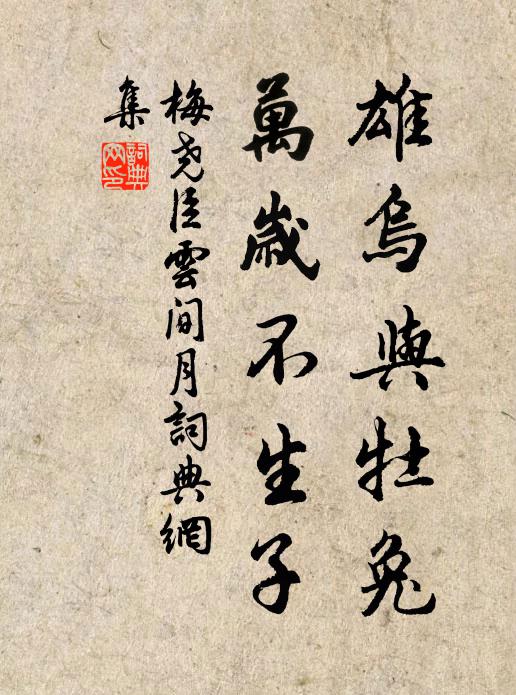 雄烏與牡兔
萬歲不生子
梅堯臣雲間月詞典網
集
詞典
网印